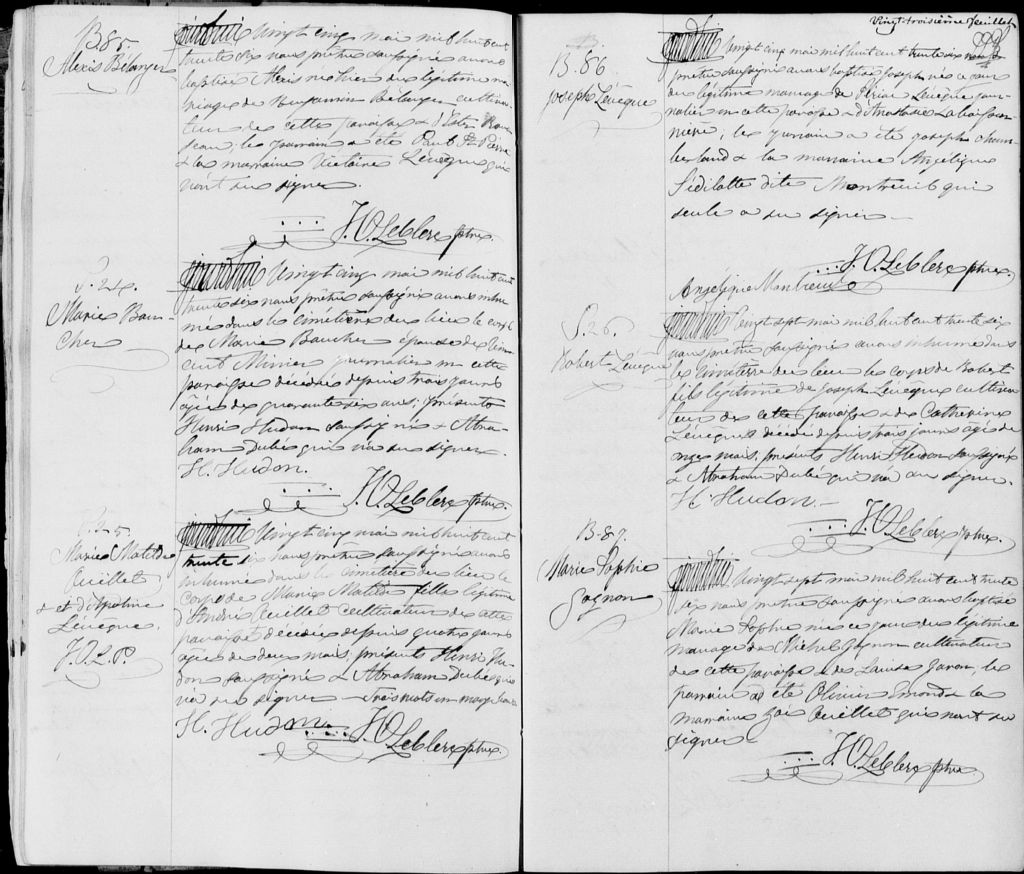 B. 85.
Alexis Bélanger
Aujourdhui Vingt cinq mai mil huit cent
trente six nous prêtre soussigné avons
baptisé Alexis né hier du légitime ma
riage de Benjamin Bélanger cultiva
teur de cette paroisse & d'Ester
Jean; le parrain a été Paul St Pierre
& la marraine Victoire Lévêque qui
n'ont su signer.
F. O. Leblerc ptre.
S. 24.
Marie Bou-
cher
Aujourdhui Vingt cinq mai mil huit cent
trente six nous prêtre soussigné avons inhu
mé dans le cimetière du lieu le corps
de Marie Boucher épouse de Vin
cent Minier journalier en cette
paroisse décédée depuis trois jours
agée de quarante six ans; présents
Henri Hudon soussigné & Abra
ham Dubé qui n'a su signer.
H. Hudon.
F. O. Leblerc ptre.
S. 25.
Marie Matilde
Ouillet
& et d'Apoline
Lévêque.
F. O. L. P.
Aujourdhui Vingt cinq mai mil huit cent
trente six nous prêtre soussigné avons
inhumé dans le cimetière du lieu le
corps de Marie Matilde fille légitime
d'André Ouillet cultivateur de cette
paroisse décédée depuis quatre jours
agée de deux mois; présents Henri Hu
don soussigné & Abraham Dubé qui
n'a su signer — Trois mots en marge
H. Hudon
F. O. Leblerc ptre.
Vingt-troisième feuillet
B. 86
Joseph Lévêque
Aujourdhui Vingt cinq mai mil huit cent trente six nous
prêtre soussigné avons baptisé Joseph né ce jour
du légitime mariage de Lévêque jour
nalier en cette paroisse & d'Anastasie Laboissons
nière, le parrain a été Joseph Cham
berland & la marraine Angélique
Sédilotte dite Montreuil qui
seule a su signer —
F. O. Leblerc ptre.
Angélique Montreuil
S. 26.
Robert Lévêque
Aujourdhui Vingt sept mai mil huit cent trente six
nous prêtre soussigné avons inhumé dans
le cimetière du lieu le corps de Robert
fils légitime de Joseph Lévêque cultiva
teur de cette paroisse & de Catherine
Lévêque décédé depuis trois jours agé de
onze mois; présents Henri Hudon soussigné
& Abraham Dubé qui n'a su signer.
H. Hudon. —
F. O. Leblerc ptre.
B. 87.
Marie Sophie
Gagnon
Aujourdhui Vingt sept mai mil huit cent trente
six nous prêtre soussigné avons baptisé
Marie Sophie née ce jour du légitime
mariage de Michel Gagnon cultivateur
de cette paroisse & de Louise; le
parrain a été Olivier Emond & la
marraine Zoé Ouillet qui n'ont su
signer —
F. O. Leblerc ptre.